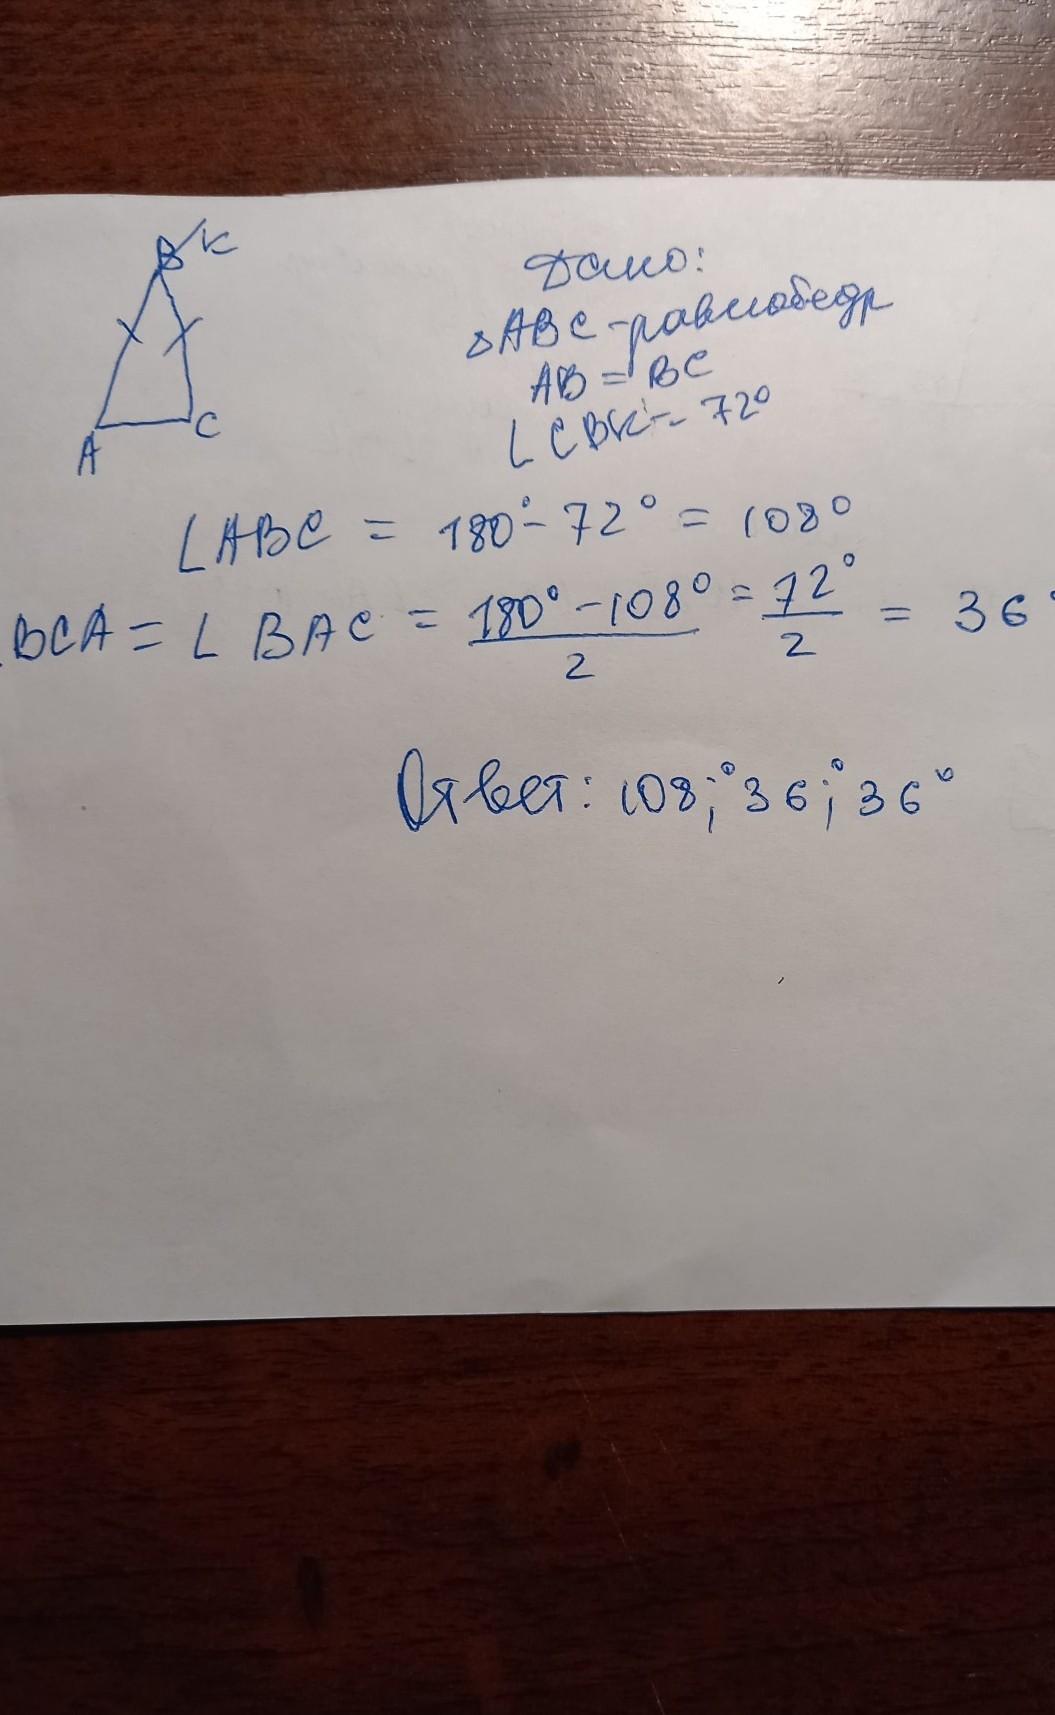 B K
A C
Дано:
△ABC - равнобедр
AB = BC
∠CBK = 72°
∠ABC = 180° - 72° = 108°
BCA = ∠BAC = (180° - 108°)/2 = 72°/2 = 36°
Ответ: 108;° 36;° 36°